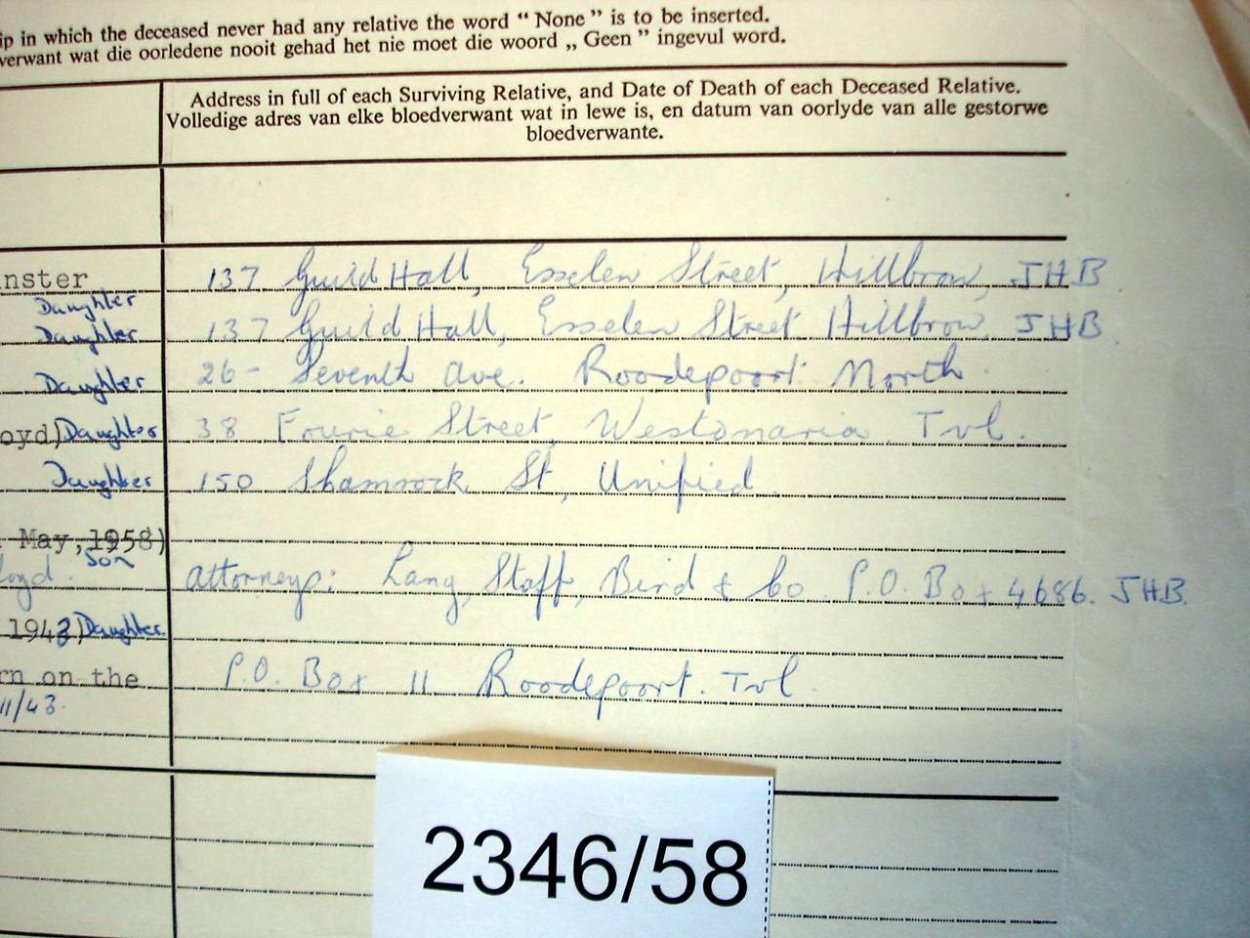 ip in which the deceased never had any relative the word “ None ” is to be inserted.
verwant wat die oorledene nooit gehad het nie moet die woord „ Geen ” ingevul word.
Address in full of each Surviving Relative, and Date of Death of each Deceased Relative.
Volledige adres van elke bloedverwant wat in lewe is, en datum van oorlyde van alle gestorwe
bloedverwante.
nster 137 Guild Hall, Esselen Street, Hillbrow, JHB
Daughter
Daughter 137 Guild Hall, Esselen Street Hillbrow, JHB.
Daughter 26 - Seventh Ave. Roodepoort North.
oyd) Daughter 38 Fourie Street, Westonaria. Tvl.
Daughter 150 Shamrock St, Unified
May, 1958)
loyd. Son attorneys: Lang, Staff, Bird & Co. P.O. Box 4686. JHB.
1943) Daughter.
rn on the P.O. Box 11 Roodepoort. Tvl.
11/43.
2346/58